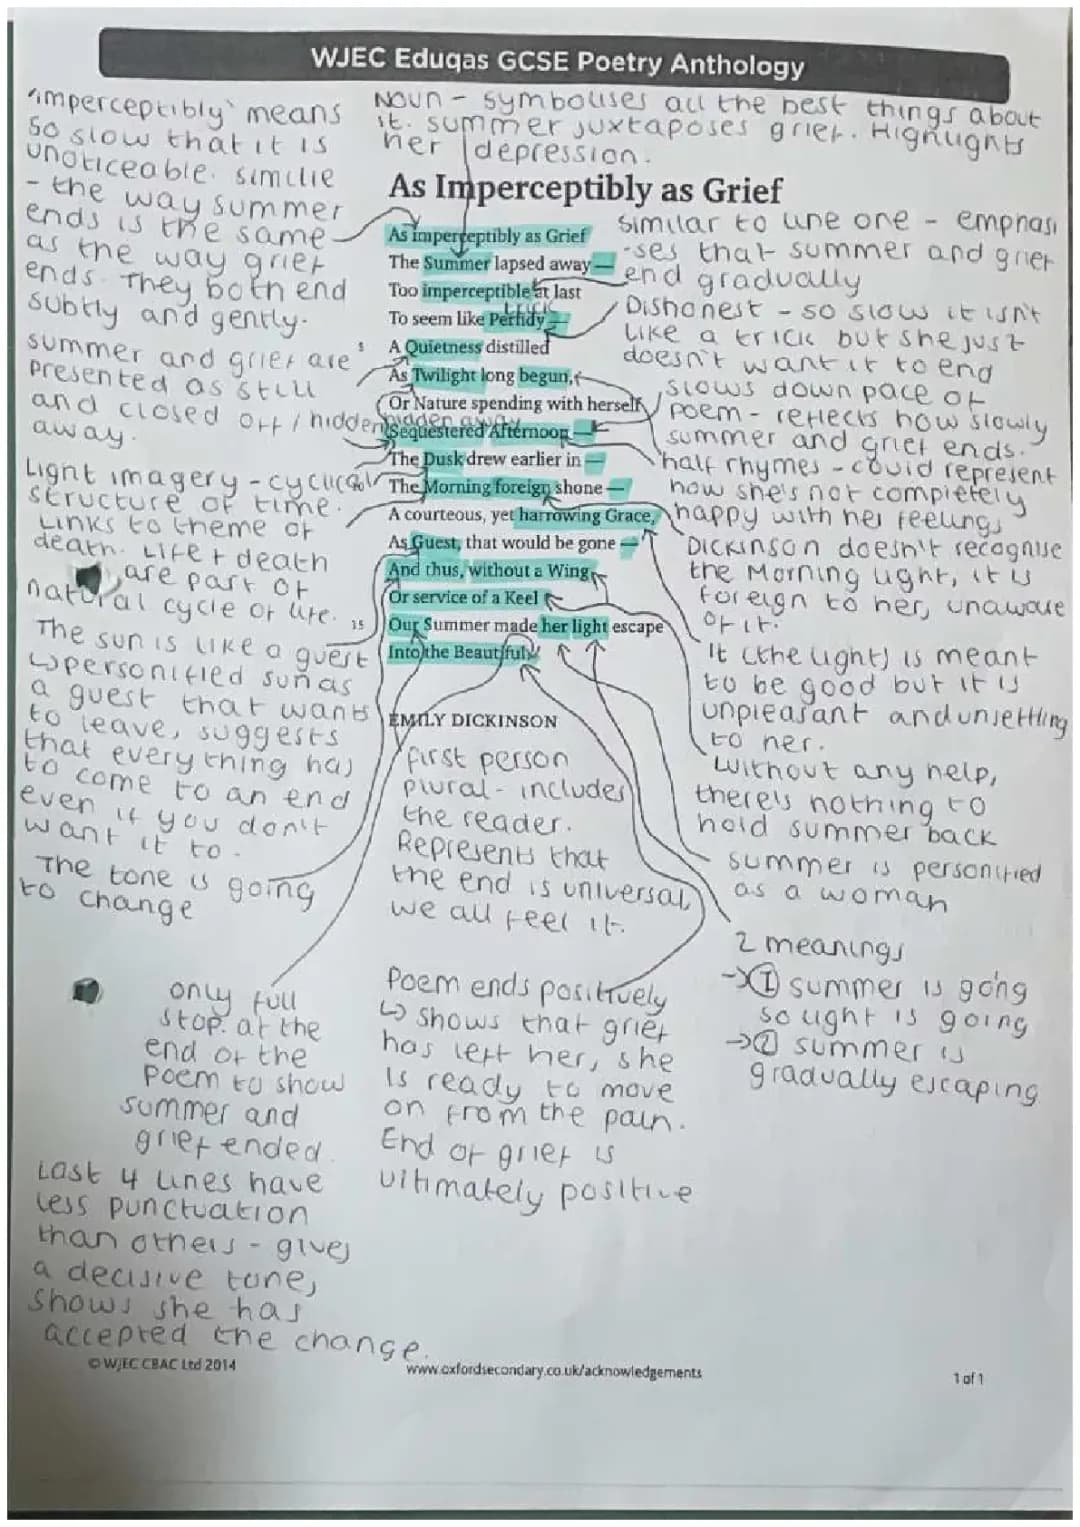 WJEC Eduqas GCSE Poetry Anthology
'imperceptibly' means
so slow that it is
unoticeable. similie
- the way summer
ends is the same
as the way grief
ends. They both end
subtly and gently.
Noun - symbolises all the best things about
it. summer juxtaposes grief. Highlights
her depression.
As Imperceptibly as Grief
As imperceptibly as Grief
The Summer lapsed away —
Too imperceptible at last
trick
To seem like Perfidy —
5 A Quietness distilled
As Twilight long begun,
Or Nature spending with herself
hidden away
Sequestered Afternoon —
The Dusk drew earlier in —
10 The Morning foreign shone —
A courteous, yet harrowing Grace,
As Guest, that would be gone —
And thus, without a Wing
Or service of a Keel
15 Our Summer made her light escape
Into the Beautiful.
EMILY DICKINSON
summer and grief are
presented as still
and closed off / hidden
away.
Light imagery - cyclical
structure of time.
Links to theme of
death. Life + death
are part of
natural cycle of life.
The sun is like a guest
↳ personified sun as
a guest that wants
to leave, suggests
that every thing has
to come to an end
even if you don't
want it to.
The tone is going
to change
similar to line one - emphasi
-ses that summer and grief
end gradually
Dishonest - so slow it isn't
like a trick but she just
doesn't want it to end
slows down pace of
poem - reflects how slowly
summer and grief ends.
half rhymes - could represent
how she's not completely
happy with her feelings
Dickinson doesn't recognise
the Morning light, it is
foreign to her, unaware
of it.
It (the light) is meant
to be good but it is
unpleasant and unsettling
to her.
Without any help,
there's nothing to
hold summer back
summer is personified
as a woman
2 meanings
→① summer is going
so light is going
→② summer is
gradually escaping
first person
plural - includes
the reader.
Represents that
the end is universal,
we all feel it.
Poem ends positively
↳ shows that grief
has left her, she
is ready to move
on from the pain.
End of grief is
ultimately positive
only full
stop. at the
end of the
poem to show
summer and
grief ended.
Last 4 lines have
less punctuation
than others - gives
a decisive tone,
shows she has
accepted the change.
© WJEC CBAC Ltd 2014
www.oxfordsecondary.co.uk/acknowledgements
1 of 1